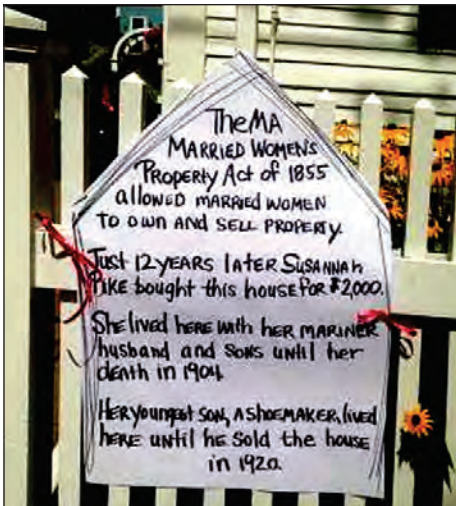 The MA
MARRIED WOMEN'S
PROPERTY ACT of 1855
allowed MARRIED WOMEN
TO OWN AND SELL PROPERTY.
Just 12 YEARS LATER SUSANNAH
PIKE bought this house for $2,000.
She lived here with her MARINER
husband and sons until her
death in 1904.
HER youngest son, A shoemaker, lived
HERE until he sold the house
in 1920.